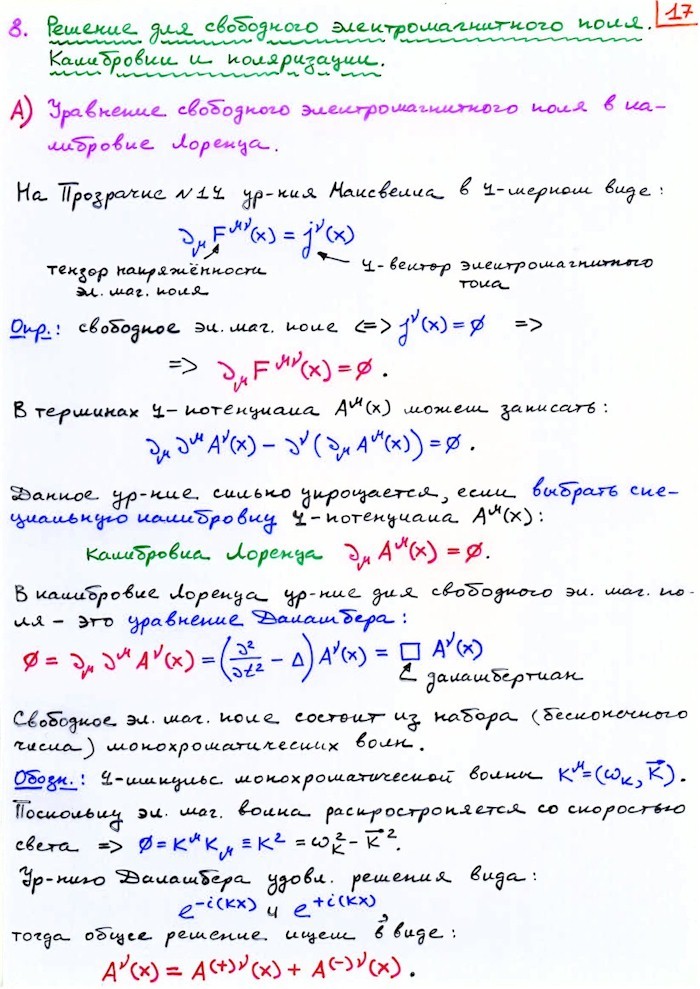 17
8. Решение для свободного электромагнитного поля.
Калибровки и поляризации.
А) Уравнение свободного электромагнитного поля в ка-
либровке Лоренца.
На Прозрачке №14 ур-ния Максвелла в 4-мерном виде:
∂_μ F^{μν}(x) = j^ν(x)
тензор напряжённости 4-вектор электромагнитного
эл. маг. поля тока
Опр.: свободное эл. маг. поле <=> j^ν(x) = ∅ =>
=> ∂_μ F^{μν}(x) = ∅.
В терминах 4-потенциала A^μ(x) можем записать:
∂_μ ∂^μ A^ν(x) − ∂^ν(∂_μ A^μ(x)) = ∅.
Данное ур-ние сильно упрощается, если выбрать спе-
циальную калибровку 4-потенциала A^μ(x):
Калибровка Лоренца ∂_μ A^μ(x) = ∅.
В калибровке Лоренца ур-ние для свободного эл. маг. по-
ля – это уравнение Даламбера:
∅ = ∂_μ ∂^μ A^ν(x) = (∂²/∂t² − Δ) A^ν(x) = □ A^ν(x)
далашбертиан
Свободное эл. маг. поле состоит из набора (бесконечного
числа) монохроматических волн.
Обозн.: 4-импульс монохроматической волны K^μ = (ω_K, K⃗).
Поскольку эл. маг. волна распростроняется со скоростью
света => ∅ = K^μ K_μ ≡ K² = ω_K² − K⃗².
Ур-нию Даламбера удовл. решения вида:
e^{−i(Kx)} и e^{+i(Kx)},
тогда общее решение ищем в виде:
A^ν(x) = A^{(+)ν}(x) + A^{(−)ν}(x).